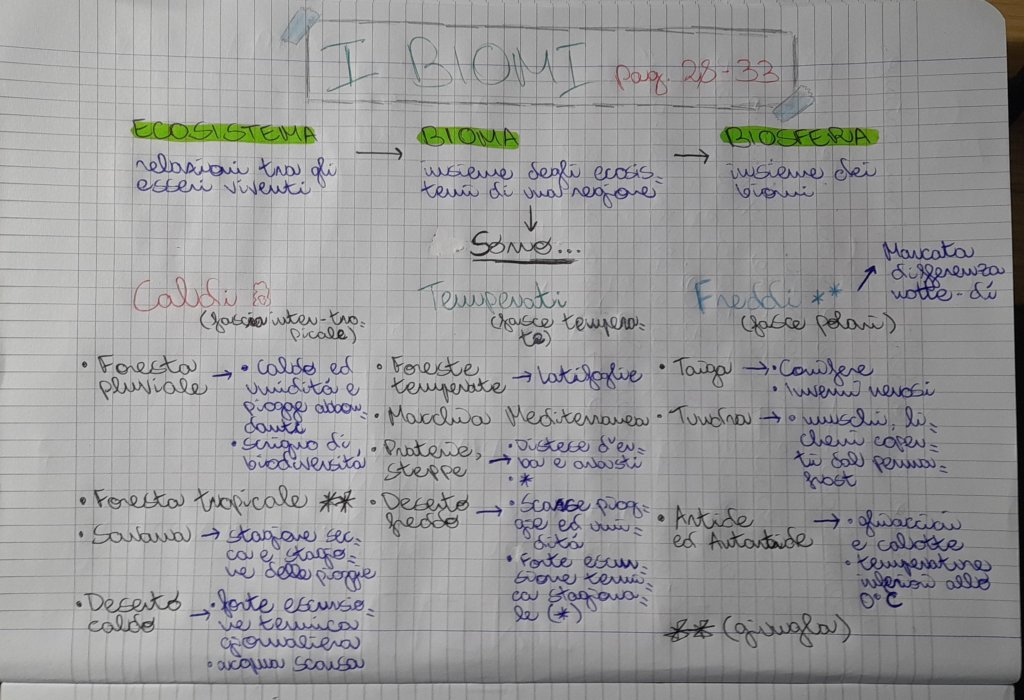 I BIOMI pag. 28-33
ECOSISTEMA
relazioni tra gli
esseri viventi
→
BIOMA
insieme degli ecosis=
temi di una regione
→
BIOSFERA
insieme dei
biomi
↓
Sono...
Caldi
(fascia inter-tro=
picale)
• Foresta
pluviale
→ • caldo ed
umidità e
piogge abbon=
danti
• scrigno di
biodiversità
• Foresta tropicale **
• Savana → stagione sec=
ca e stagio=
ne delle piogge
• Deserto
caldo
→ • forte escursio=
ne termica
giornaliera
• acqua scarsa
Temperati
(fasce tempera=
te)
• Foreste
temperate → latifoglie
• Macchia Mediterranea
• Praterie,
steppe
→ • Distese d'er=
ba e arbusti
• *
• Deserto
freddo
→ • Scarse piog=
gie ed umi=
dità
• Forte escur=
sione termi=
ca stagiona=
le (*)
Freddi **
(fasce polari)
↗ Marcata
differenza
notte-dì
• Taiga → • Conifere
• Inverni nevosi
• Tundra → • muschi, li=
cheni coper=
ti dal perma=
frost
• Artide
ed Antartide
→ • ghiacciai
e calotte
• temperature
inferiori allo
0°C
** (giungla)